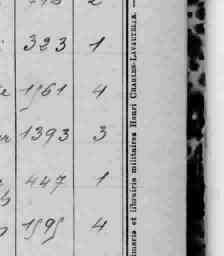 323 1
1961 4
1393 3
447 1
4
imerie et librairie militaires Henri CHARLES-LAVAUZELLE. —